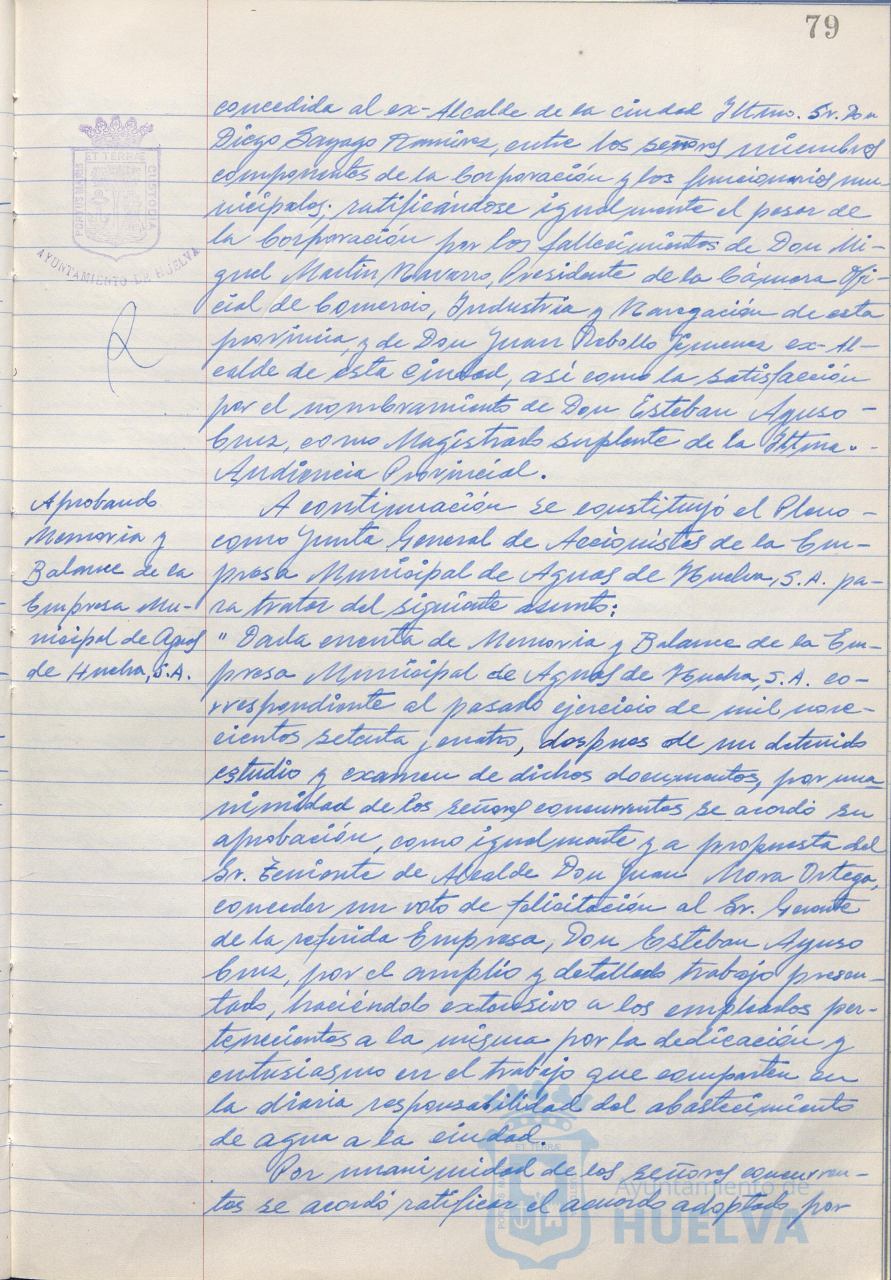 79
concedida al ex-Alcalde de la ciudad Iltmo. Sr. Don
Diego Sayago Ramírez, entre los señores miembros
componentes de la Corporación y los funcionarios mu-
nicipales; ratificándose igualmente el pesar de
la Corporación por los fallecimientos de Don Mi-
guel Martin Navarro, Presidente de la Cámara Ofi-
cial de Comercio, Industria y Navegación de esta
provincia, y de Don Juan Rebollo Jimenez ex-Al-
calde de esta Ciudad, así como la satisfacción
por el nombramiento de Don Esteban Ayuso
Cruz, como Magistrado suplente de la Iltma.
Audiencia Provincial.
Aprobando
Memoria y
Balance de la
Empresa Mu-
nicipal de Aguas
de Huelva, S.A.
A continuación se constituyó el Pleno
como Junta General de Accionistas de la Em-
presa Municipal de Aguas de Huelva, S.A. pa-
ra tratar del siguiente asunto:
" Dada cuenta de Memoria y Balance de la Em-
presa Municipal de Aguas de Huelva, S.A. co-
rrespondiente al pasado ejercicio de mil nove-
cientos setenta y cuatro, despues de un detenido
estudio y examen de dichos documentos, por una-
nimidad de los señores concurrentes se acordó su
aprobación, como igualmente y a propuesta del
Sr. Teniente de Alcalde Don Juan Mora Ortega,
conceder un voto de felicitación al Sr. Gerente
de la referida Empresa, Don Esteban Ayuso
Cruz, por el amplio y detallado trabajo presen-
tado, haciéndolo extensivo a los empleados per-
tenecientes a la misma por la dedicación y
entusiasmo en el trabajo que comparten en
la diaria responsabilidad del abastecimiento
de agua a la ciudad.
Por unanimidad de los señores concurren-
tes se acordó ratificar el acuerdo adoptado por
PORTUS MARIS
ET TERRÆ
CUSTODIA
AYUNTAMIENTO DE HUELVA
Ayuntamiento de
HUELVA